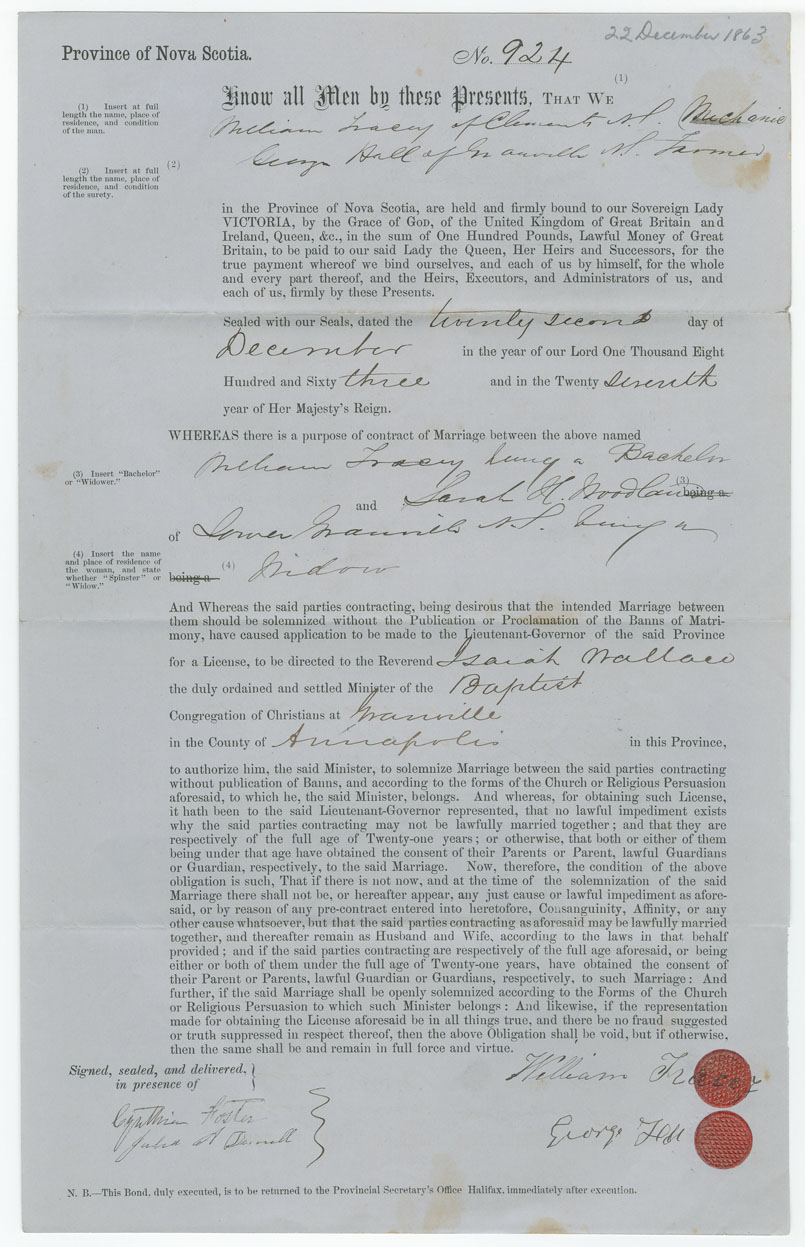 22 December 1863
Province of Nova Scotia.
No. 924
Know all Men by these Presents, THAT WE (1)
(1) Insert at full
length the name, place of
residence, and condition
of the man.
William Tracey of Clements N.S. Mechanic
(2)
George Hall of Granville N.S. Farmer
(2) Insert at full
length the name, place of
residence, and condition
of the surety.
in the Province of Nova Scotia, are held and firmly bound to our Sovereign Lady
VICTORIA, by the Grace of GOD, of the United Kingdom of Great Britain and
Ireland, Queen, &c., in the sum of One Hundred Pounds, Lawful Money of Great
Britain, to be paid to our said Lady the Queen, Her Heirs and Successors, for the
true payment whereof we bind ourselves, and each of us by himself, for the whole
and every part thereof, and the Heirs, Executors, and Administrators of us, and
each of us, firmly by these Presents.
Sealed with our Seals, dated the twenty second day of
December in the year of our Lord One Thousand Eight
Hundred and Sixty three and in the Twenty seventh
year of Her Majesty's Reign.
WHEREAS there is a purpose of contract of Marriage between the above named
William Tracey being a Bachelor
(3) Insert "Bachelor"
or "Widower."
(3)
and Sarah H. Woodland being a
of Lower Granville N.S. being a
(4) Insert the name
and place of residence of
the woman, and state
whether "Spinster" or
"Widow."
being a (4) Widow
And Whereas the said parties contracting, being desirous that the intended Marriage between
them should be solemnized without the Publication or Proclamation of the Banns of Matri-
mony, have caused application to be made to the Lieutenant-Governor of the said Province
for a License, to be directed to the Reverend Isaiah Wallace
the duly ordained and settled Minister of the Baptist
Congregation of Christians at Granville
in the County of Annapolis in this Province,
to authorize him, the said Minister, to solemnize Marriage between the said parties contracting
without publication of Banns, and according to the forms of the Church or Religious Persuasion
aforesaid, to which he, the said Minister, belongs. And whereas, for obtaining such License,
it hath been to the said Lieutenant-Governor represented, that no lawful impediment exists
why the said parties contracting may not be lawfully married together; and that they are
respectively of the full age of Twenty-one years; or otherwise, that both or either of them
being under that age have obtained the consent of their Parents or Parent, lawful Guardians
or Guardian, respectively, to the said Marriage. Now, therefore, the condition of the above
obligation is such, That if there is not now, and at the time of the solemnization of the said
Marriage there shall not be, or hereafter appear, any just cause or lawful impediment as afore-
said, or by reason of any pre-contract entered into heretofore, Consanguinity, Affinity, or any
other cause whatsoever, but that the said parties contracting as aforesaid may be lawfully married
together, and thereafter remain as Husband and Wife, according to the laws in that behalf
provided; and if the said parties contracting are respectively of the full age aforesaid, or being
either or both of them under the full age of Twenty-one years, have obtained the consent of
their Parent or Parents, lawful Guardian or Guardians, respectively, to such Marriage: And
further, if the said Marriage shall be openly solemnized according to the Forms of the Church
or Religious Persuasion to which such Minister belongs: And likewise, if the representation
made for obtaining the License aforesaid be in all things true, and there be no fraud suggested
or truth suppressed in respect thereof, then the above Obligation shall be void, but if otherwise,
then the same shall be and remain in full force and virtue.
Signed, sealed, and delivered,
in presence of
William Tracey
Cynthia Foster
George Hall
N. B.—This Bond, duly executed, is to be returned to the Provincial Secretary's Office Halifax, immediately after execution.